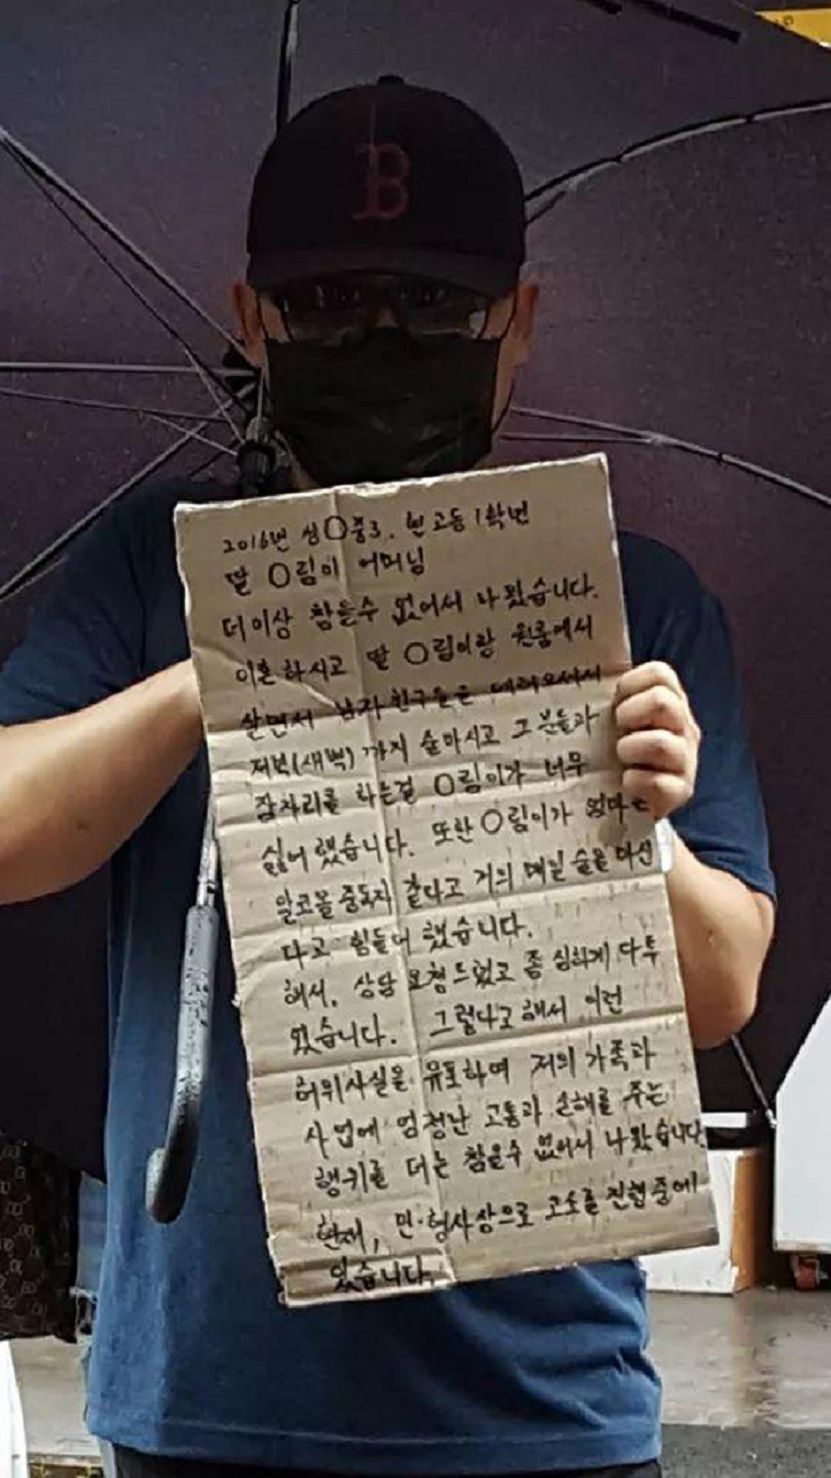 B
2016년 상○중3. 현 고등 1학년
딸 ○림이 어머님
더이상 참을수 없어서 나왔습니다.
이혼하시고 딸 ○림이랑 원룸에서
살면서 남자친구들을 데려오셔서
저녁(새벽) 까지 술마시고 그 분들과
잠자리를 하는걸 ○림이가 너무
싫어했습니다. 또한 ○림이가 엄마는
알코올 중독자 같다고 거의 매일 술을 마신
다고 힘들어 했습니다.
해서, 상담 요청드렸고 좀 심하게 다투
었습니다. 그렇다고해서 이런
허위사실을 유포하며 저의 가족과
사업에 엄청난 고통과 손해를 주는
행위를 더는 참을수 없어서 나왔습니다.
현재, 민·형사상으로 고소를 진행중에
있습니다.